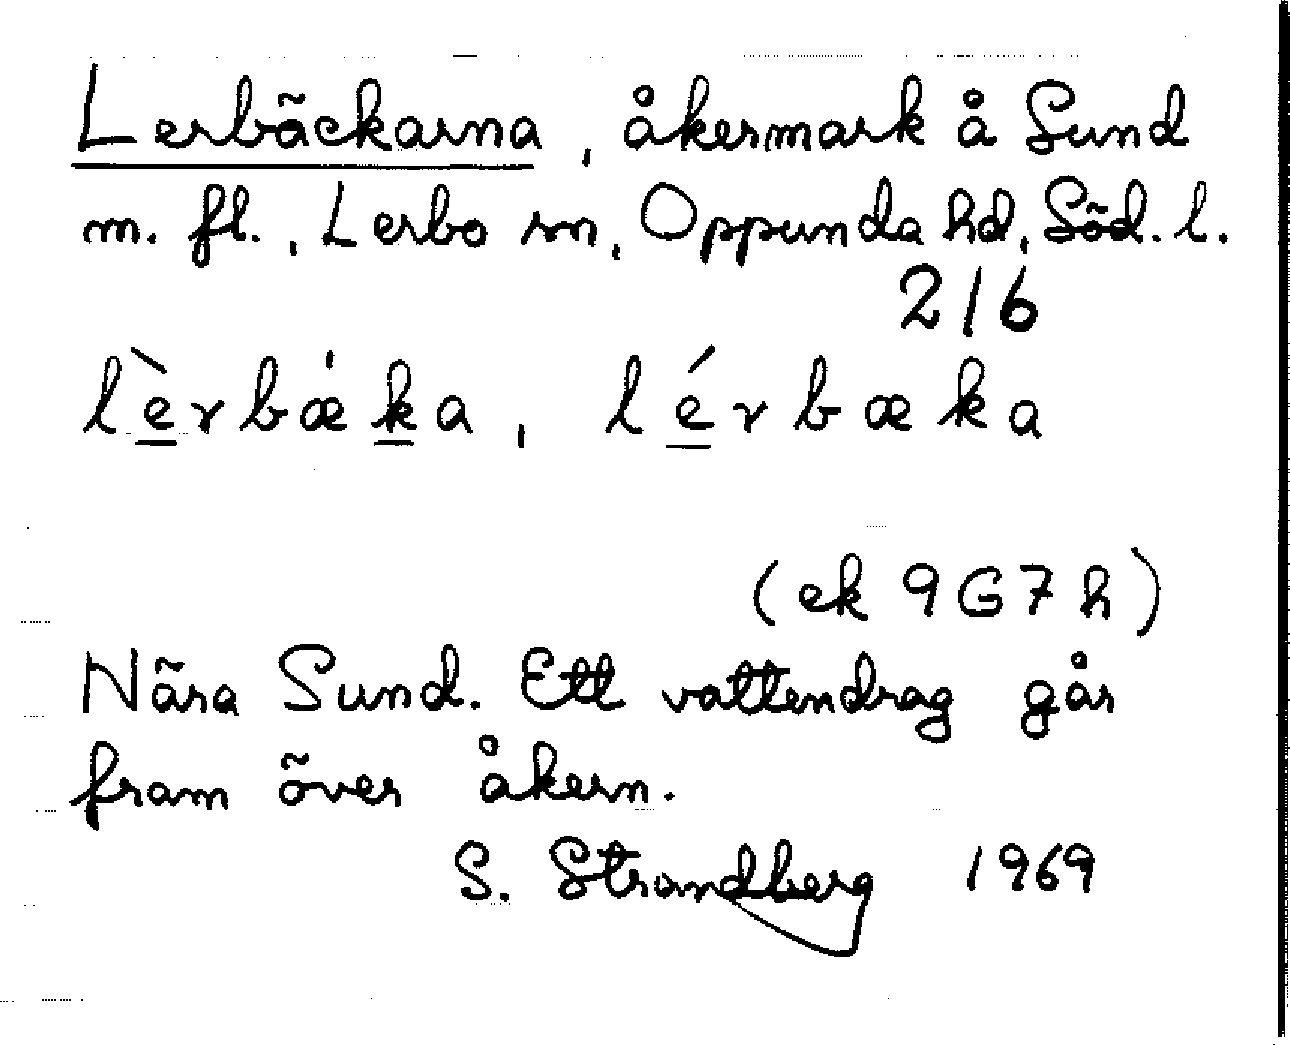 Lerbäckarna, åkermark å Sund
m. fl., Lerbo sn, Oppunda hd, Söd. l.
216
lèrbæ̍ka, lérbæka
(ek 9G7h)
Nära Sund. Ett vattendrag går
fram över åkern.
S. Strandberg 1969